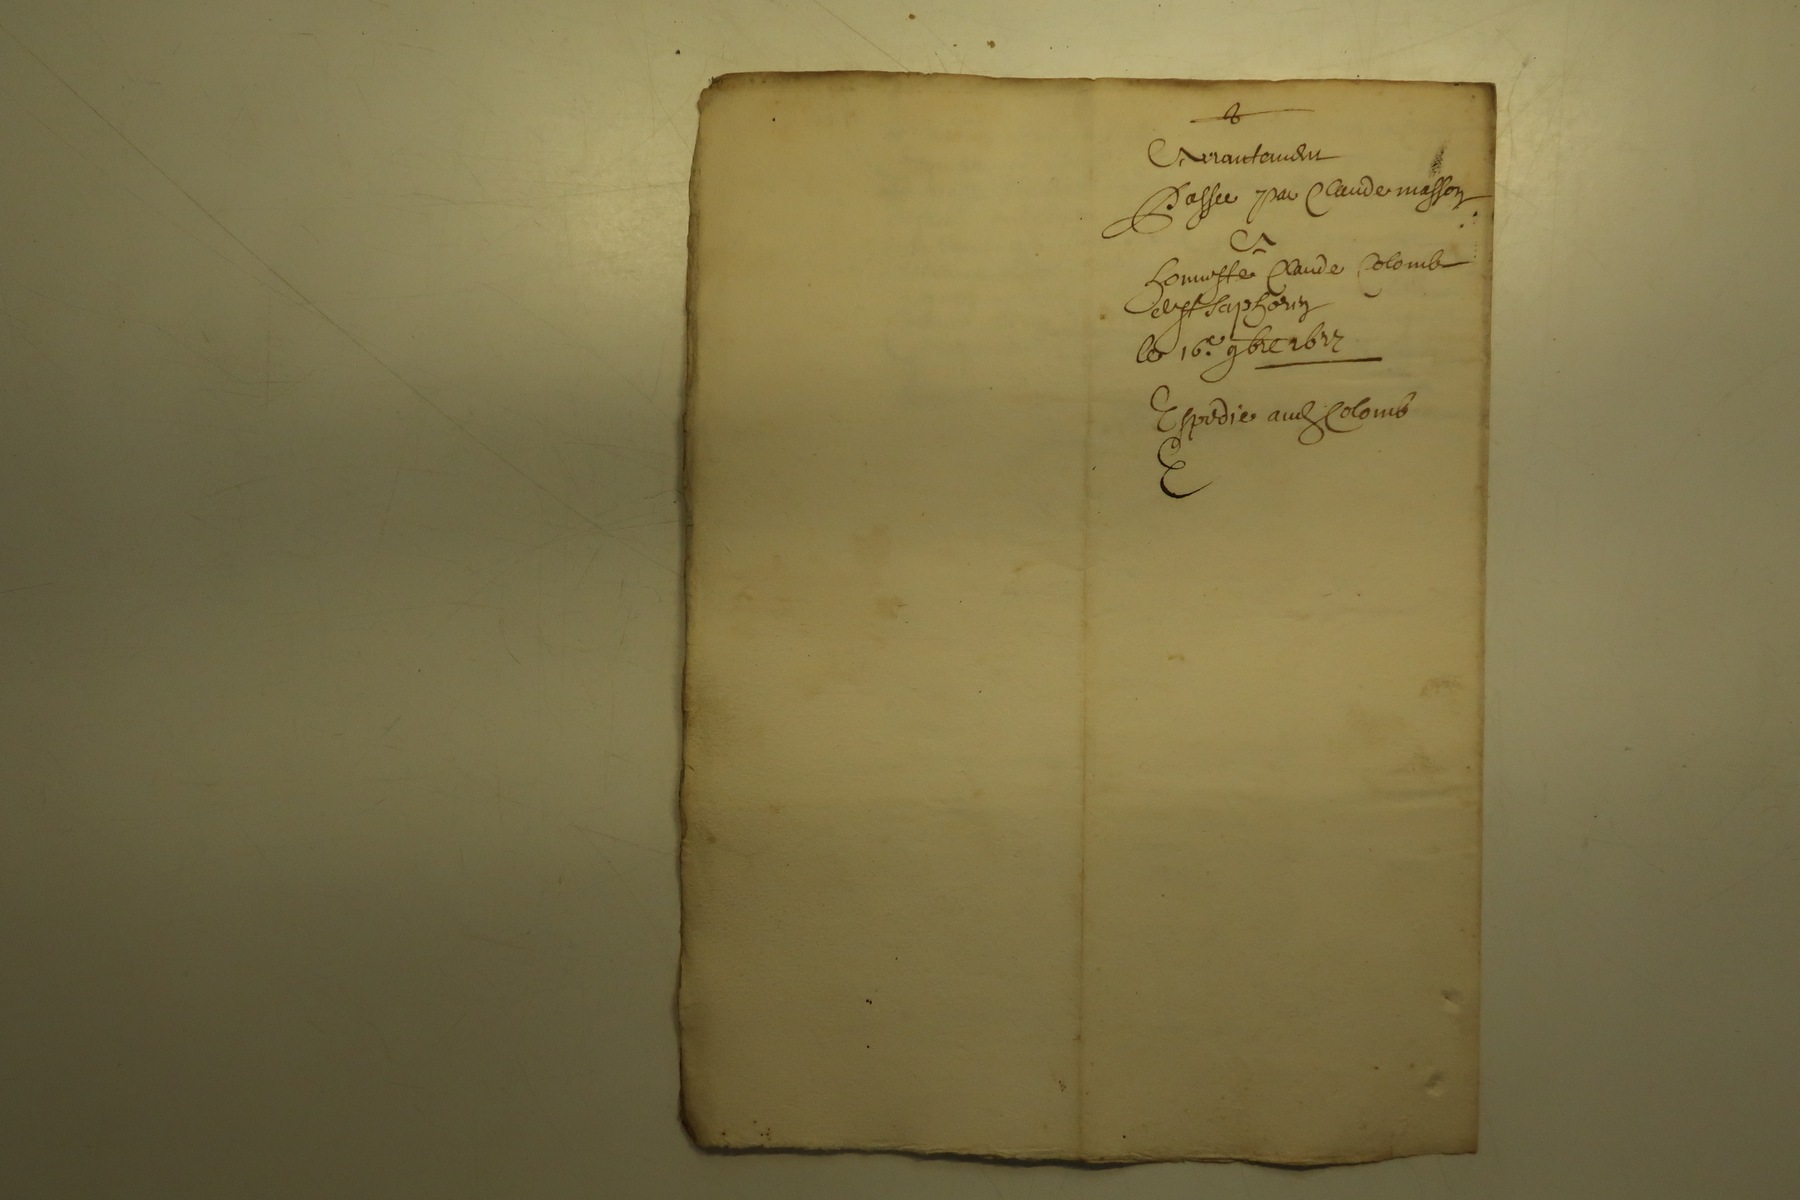 Arrantement
Passee par Claude masson
A
honneste Claude Colomb
de st saphorin
le 16.e 9bre 1677
Expedie aud Colomb